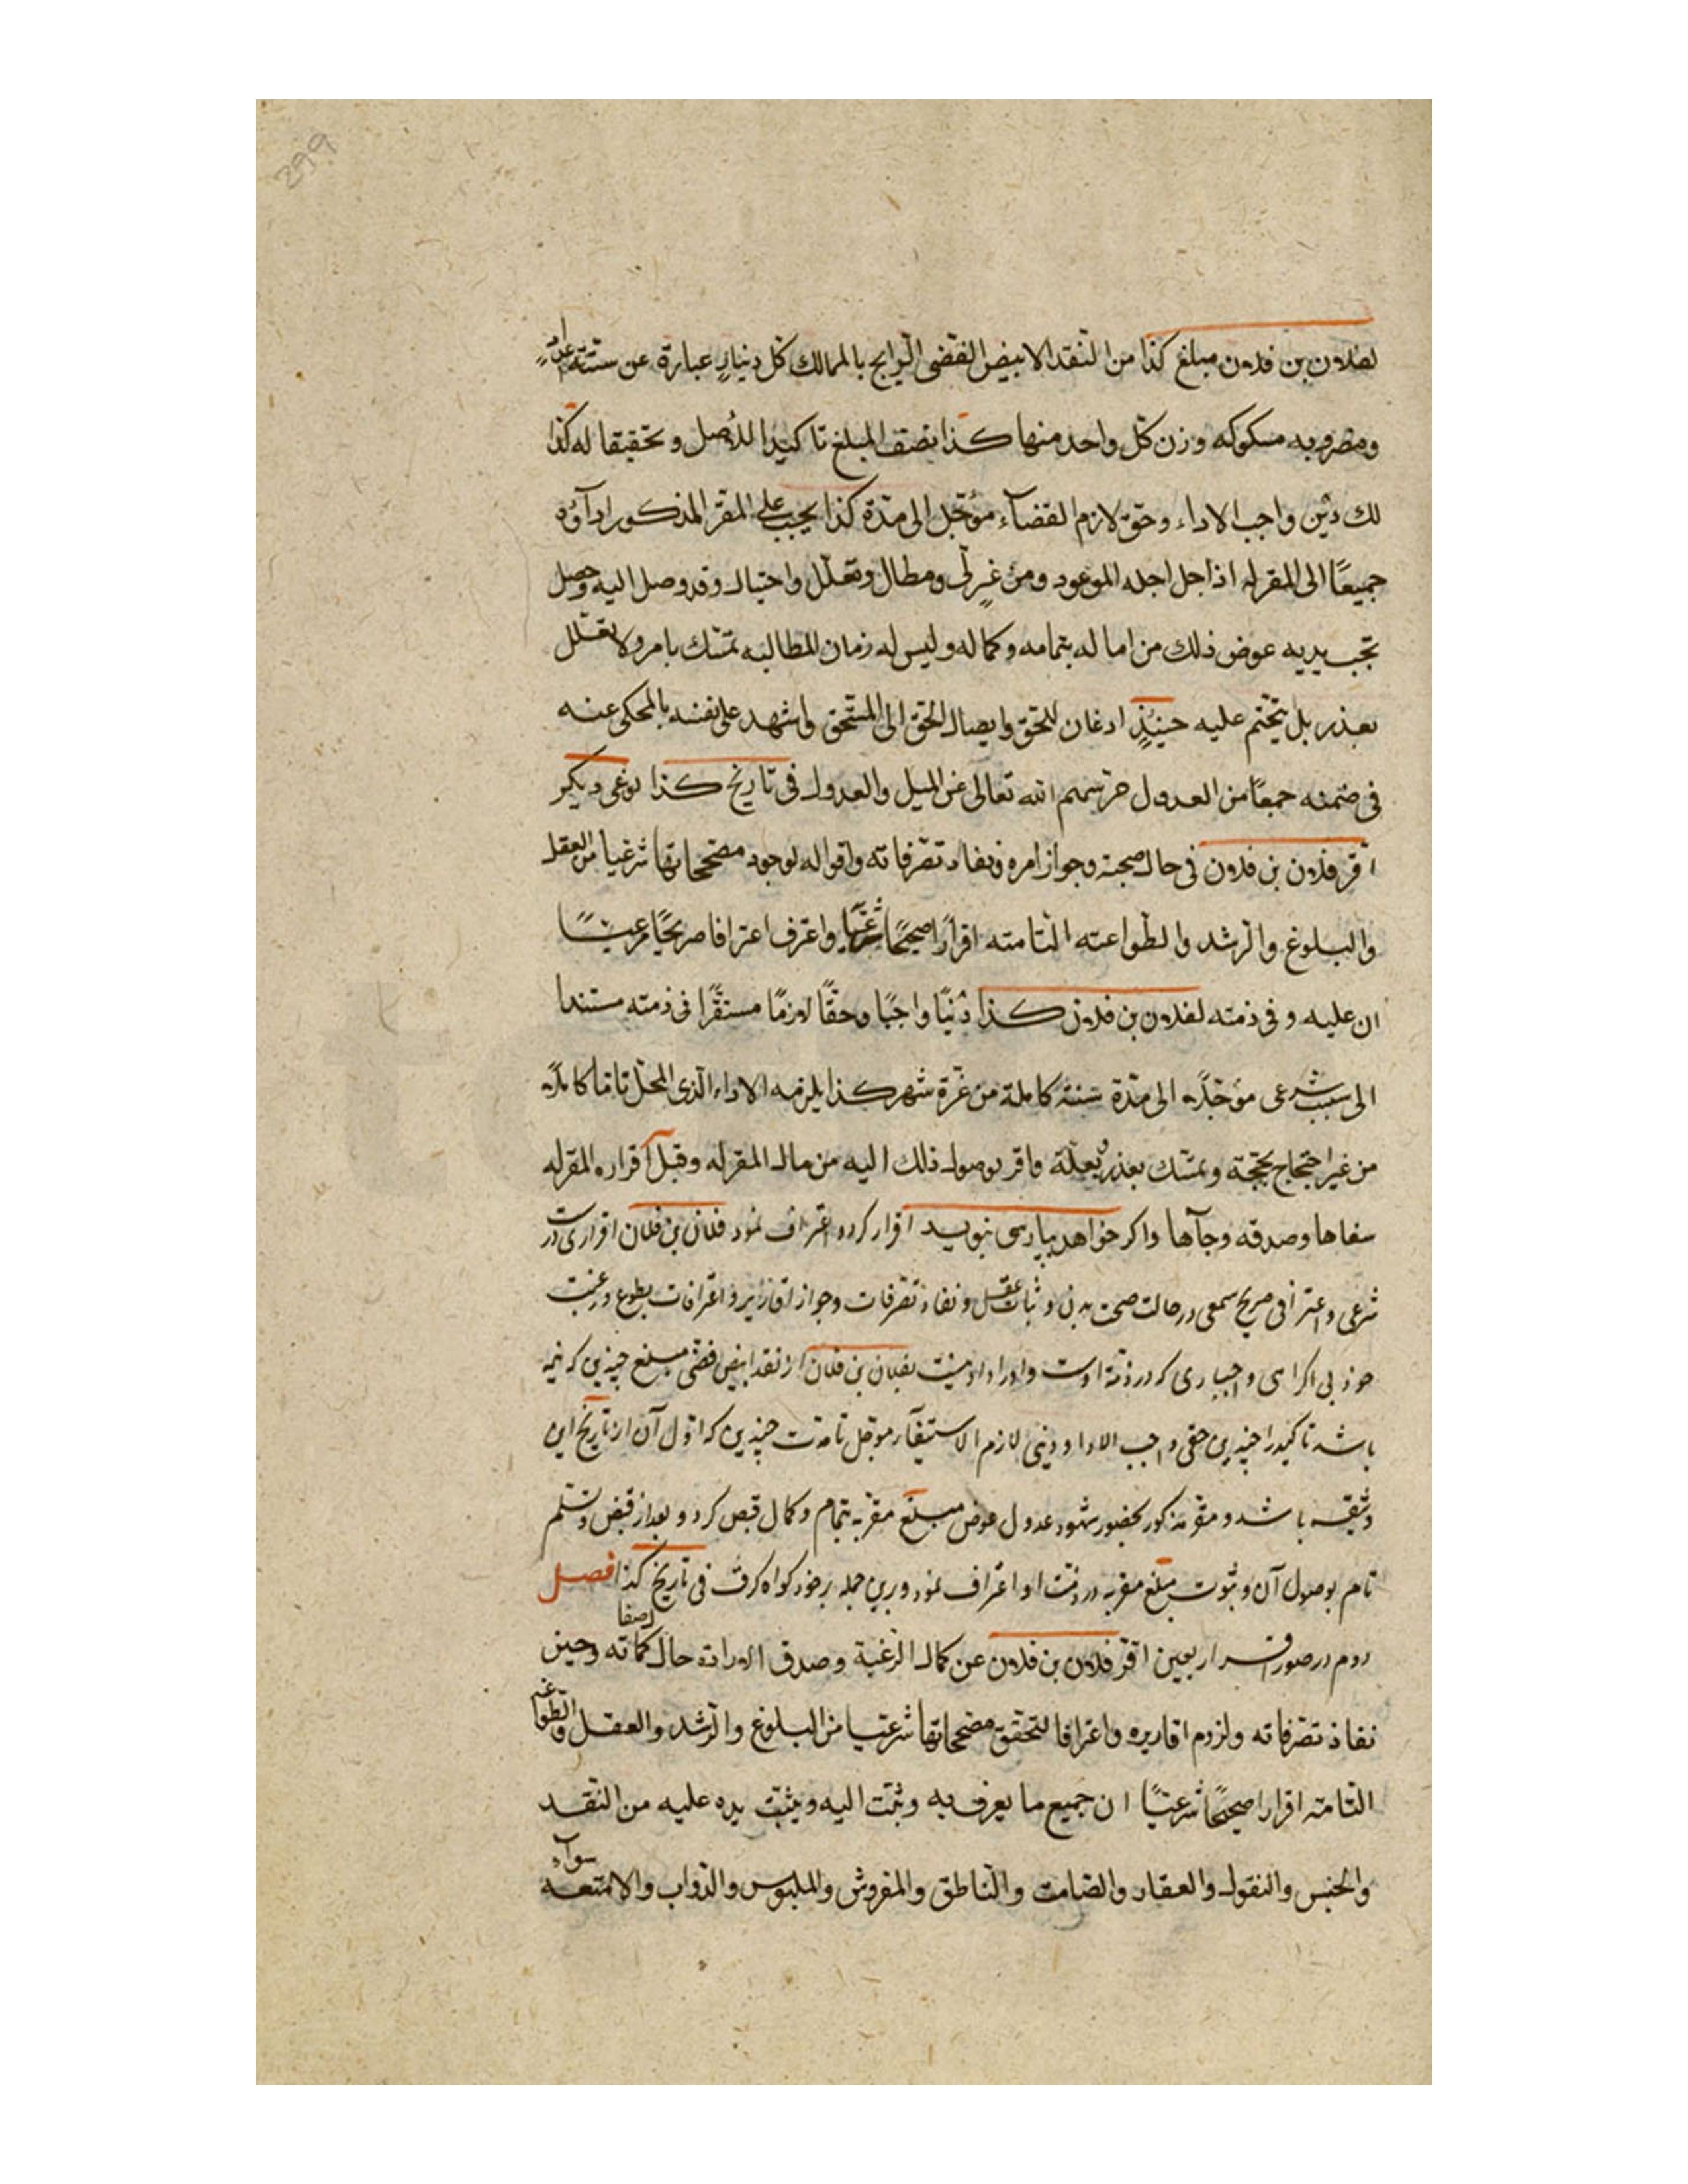 299
لفلان بن فلان مبلغ كذا من النقد الابيض الفضى الرايج بالممالك كل دينار عبارة عن ستة
ومضروبه مسكوكه وزن كل واحد منها كذا نصف المبلغ تاكيدا للاصل وتحقيقا له كذا
لك دين واجب الاداء وحق لازم القضاء مؤجل الى مدة كذا يجب على المقر المذكور اداؤه
جميعًا الى المقر له اذا حل اجله الموعود ومن غير لى ومطال وتعلل واحتيال وقد وصل اليه وحصل
تحت يديه عوض ذلك من اما له بتمامه وكماله وليس له زمان المطالبه تمسك بامر ولا تعلل
بعذر بل يتحتم عليه حينئذٍ اذعان للحق وايصال الحق الى المستحق واشهد على نفسه بالمحكى عنه
فى ضمنه جمعًا من العدول حرسهم الله تعالى عن الميل والعدول فى تاريخ كذا نوعى ديكر
اقر فلان بن فلان فى حال صحته وجواز امره ونفاد تصرفاته واقواله لوجود مصححاتها شرعيا من العقل
والبلوغ والرشد والطواعته التامته اقرارًا صحيحًا شرعيًا واعترف اعترافا صريحًا مرعيًا
ان عليه وفى ذمته لفلان بن فلان كذا دينًا واجبًا وحقًا لازمًا مستقرًا فى ذمته مستندا
الى سبب شرعى مؤجلا الى مدة سنة كاملة من غرة شهر كذا يلزمه الاداء الذى المحل تاما كاملا
من غير احتجاج بحجة وتمسك بعذر وبعلة واقر بوصول ذلك اليه من مال المقر له وقبل اقراره المقر له
سفاها وصدقه وجآها واكر خواهد بپارسى نبويد اقرار كرده اعتراف نمود فلان بن فلان اقرارى درست
شرعى و اعترافى صريح سمعى در حالت صحت بدن و ثبات عقل و نفاذ تصرفات و جواز اقارير و اعترافات بطوع و رغبت
خود بى اكراهى و اجبارى كه در ذمة اوست بفلان بن فلان از نقد ابيض فضى مبلغ چندين كه نيمه
باشد تاكيد را چندين حقى واجب الادا و دينى لازم الاستيفآء موجل تا مدت چندين كه اول آن از تاريخ اين
وثيقه باشد و مقر مذكور بحضور شهود عدول عوض مبلغ مقر به بتمام و كمال قبض كرد و بعد از قبض و تسلم
تام بوصول آن و ثبوت مبلغ مقر به در ذمت او اعتراف نمود و برين جمله بر خود كواه كرفت فى تاريخ كذا فصل
دوم در صور اقرار بعين اقر فلان بن فلان عن كمال الرغبة وصدق الارادة حال كماته وحين
نفاذ تصرفاته ولزوم اقاريره واعترافا لتحقق مصححاتها شرعيا من البلوغ والرشد والعقل والطواعته
التامته اقرارا صحيحًا شرعيًا ان جميع ما يعرف به وثبت اليه ويثبت يده عليه من النقد
والجنس والنقول والعقار والصامت والناطق والمفروش والملبوس والدواب والامتعه سوآء